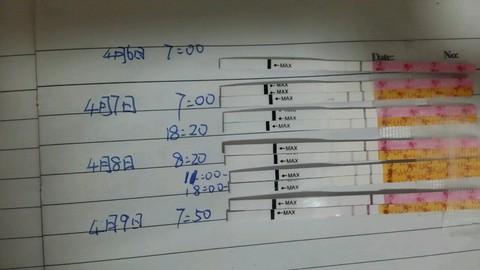 Date: No:
4月6日 7:00 ←MAX
←MAX
4月7日 7:00 ←MAX
←MAX
18:20 ←MAX
←MAX
4月8日 8:20 ←MAX
11:00- ←MAX
18:00- ←MAX
←MAX
4月9日 7:50 ←MAX